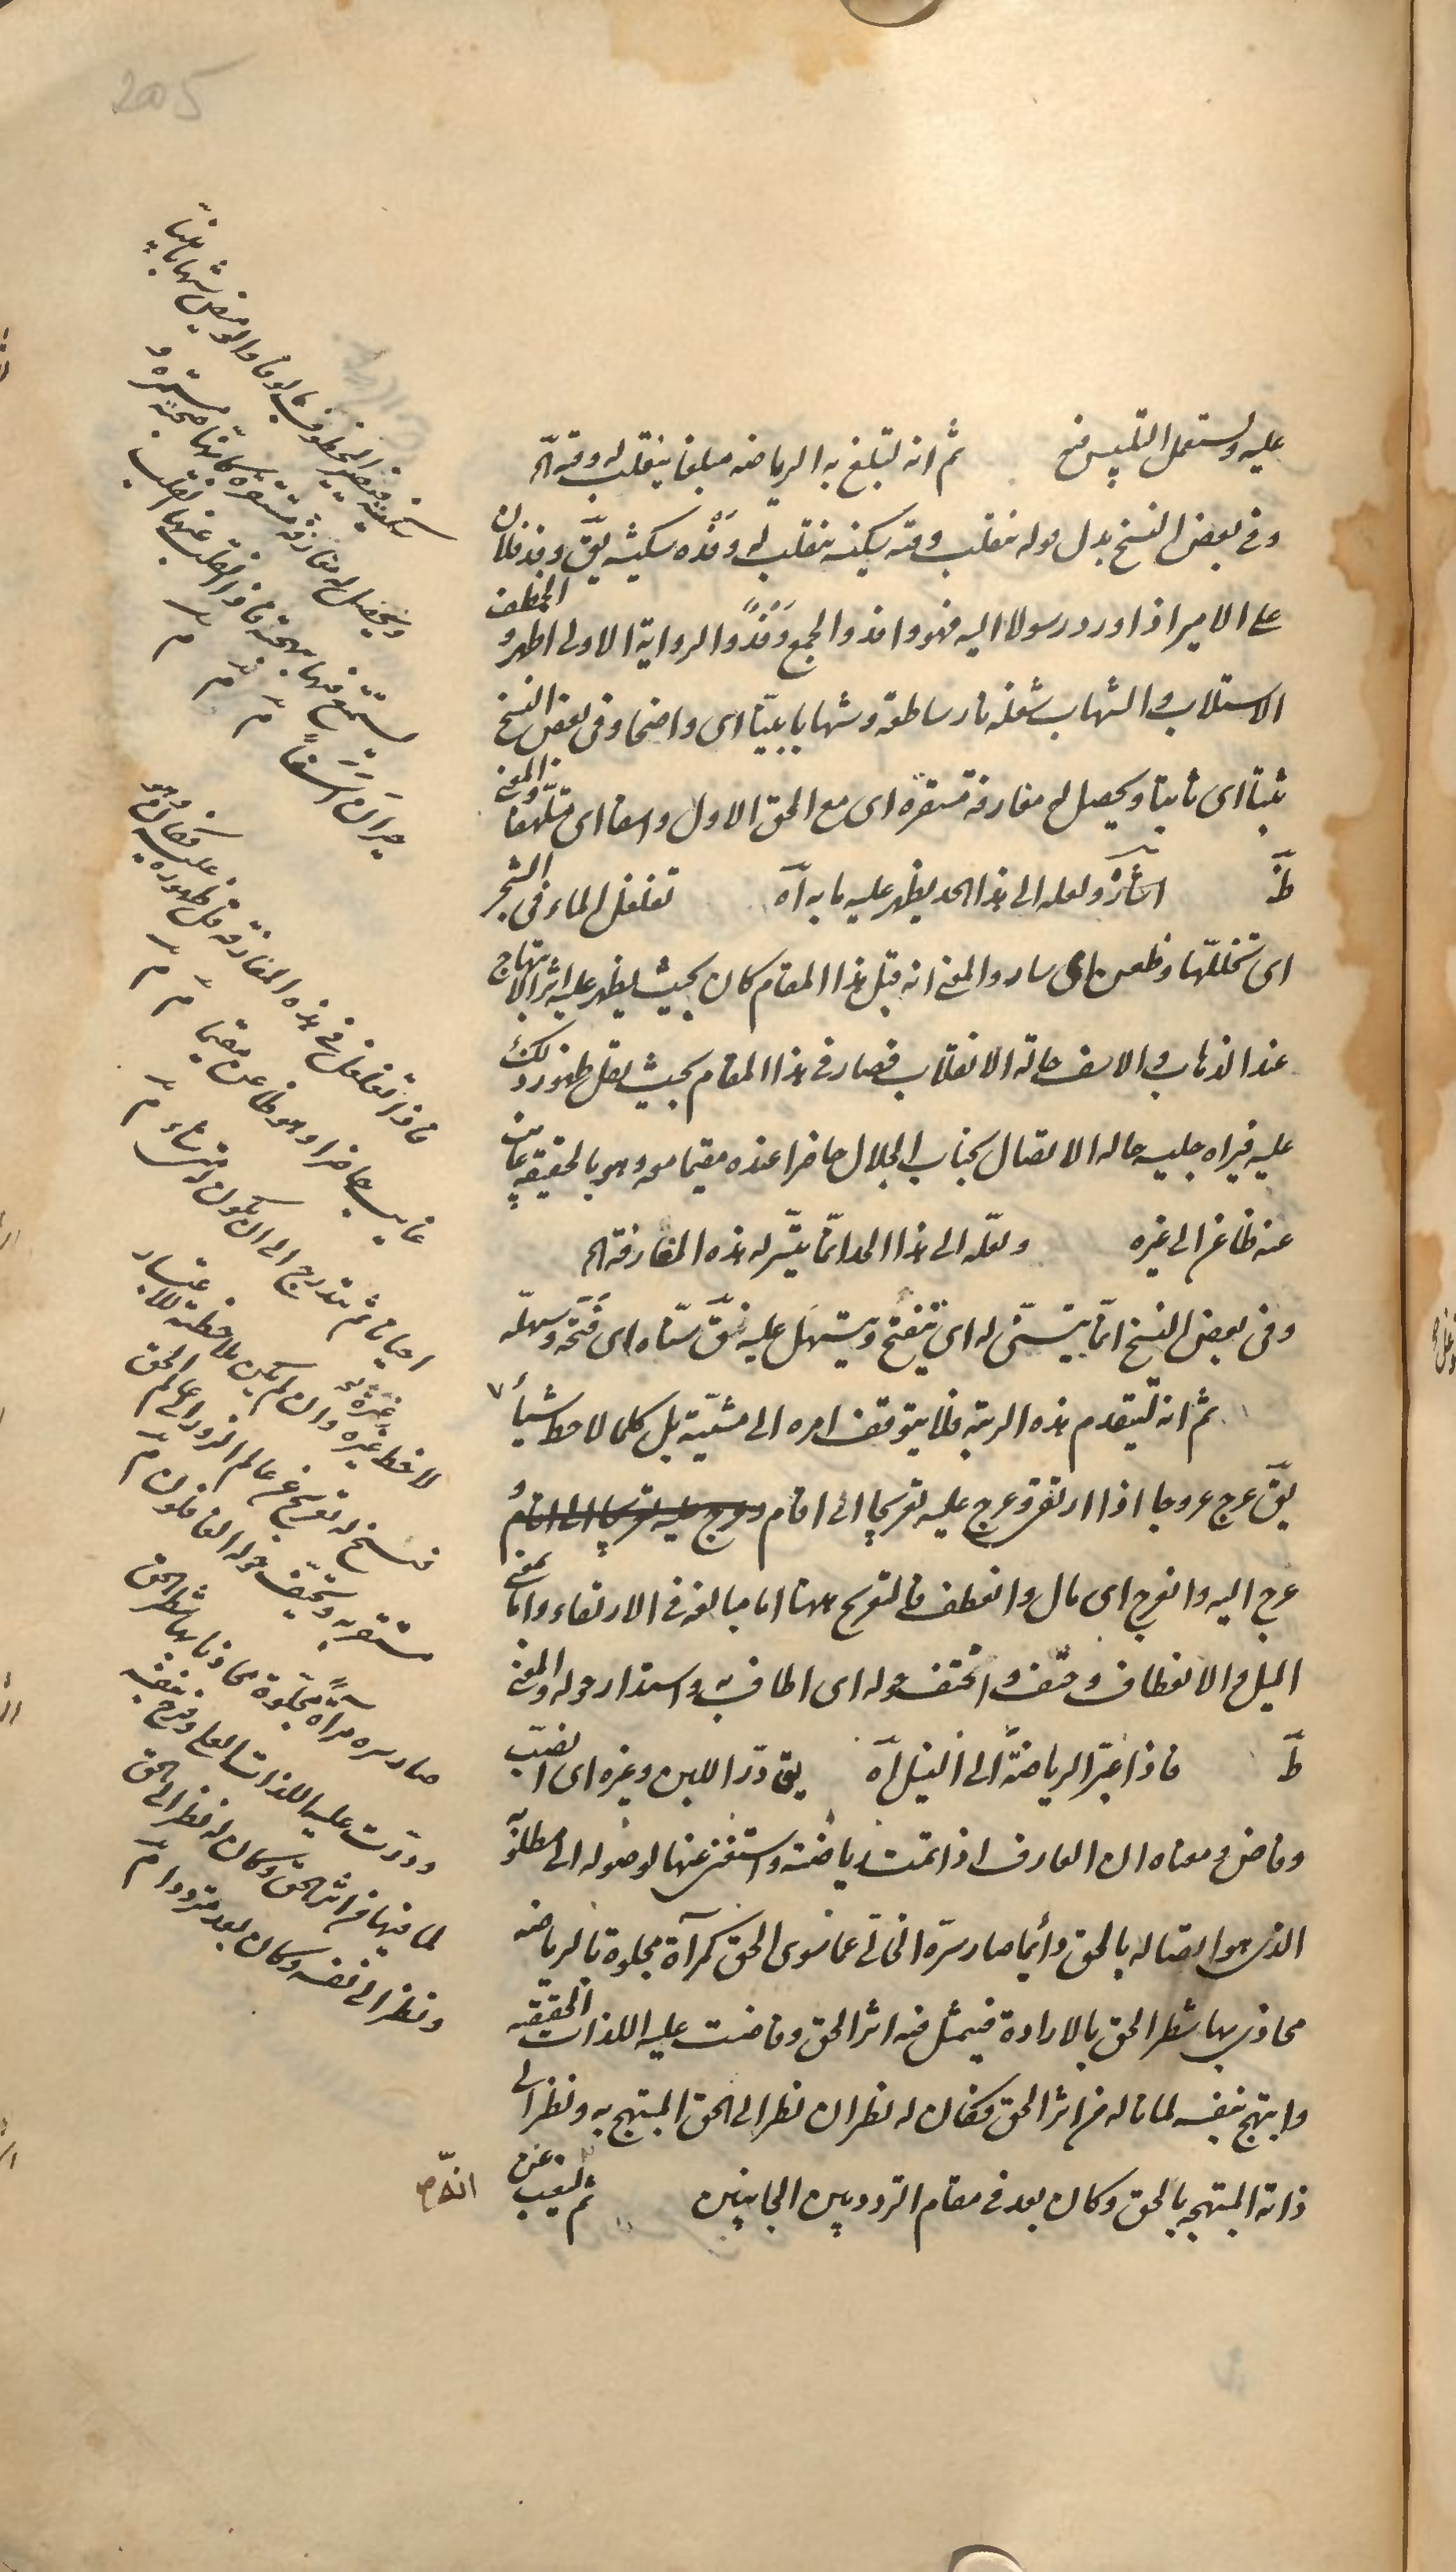 2005
عليه ويستعمل التلبيس فيه ثم انه لتبلغ به الرياضه مبلغا ينقلب له وقته الخ
وفي بعض النسخ بدل قوله ينقلب وقته سكينه ينقلب له وَفْدُه سكينه يقّ وفد فلان
على الامير اذا ورد رسولا اليه فهو وافد والجمع وَفْدٌ والرواية الاولى اظهر والخطف
الاستلاب والشهاب شعلة نار ساطعة وشهابا بيّنا اى واضحا وفى بعض النسخ
ثبتا اى ثابتا ويحصل له معارفة مستقرة اى مع الحق الاول واسفا اى متلهفا والمعنى
ظَ اشارة ولعله الى هذا الحد يظهر عليه ما به آه تغلغل الماء فى الشجر
اى تخللّها وظعن اى سار والمعنى انه قبل هذا المقام كان بحيث يظهر عليه اثر الابتهاج
عند الذهاب والاسف حالة الانقلاب فصار فى هذا المقام بحيث يقل ظهور ذلك
عليه فيراه جليسه حالة الاتصال بجناب الجلال حاضرا عنده مقيما معه وهو بالحقيقة غايب
عنه ظاعن الى غيره ولعلّه الى هذا الحد انّما يتيسّر له هذه المعارفة الخ
وفى بعض النسخ انّما يتسنّى له اى يَنْفتح ويتسهّل عليه يقّ سنّاه اى فَتَحَه وسهّله
ثم انه ليتقدم هذه الرتبه فلا يتوقف امره الى مشيّته بل كلما لاحظ شيأ
يقّ عرج عروجا اذا ارتقى وعرج عليه تعريجا اى اقام وعرج عليه تعريجا اى اقام و
عرج اليه وانعرج اى مال وانعطف فالتعريج ههنا اما مبالغة فى الارتقاء واما بمعنى
الميل والانعطاف وحفّ واحتفّ حوله اى اطاف به واستدار حوله والمعنى
ظَ فاذا عبر الرياضة الى النيل آه يق درّ اللبن وغيره اى انصبّ
وفاض ومعناه ان العارف اذا تمت رياضته واستغنى عنها لوصوله الى مطلوبه
الذى هو اتصاله بالحق دائما صار سرّه الخالى عما سوى الحق كمرآة مجلوة بالرياضه
محاذى بها شطر الحق بالارادة فيتمثل فيه اثر الحق وفاضت عليه اللذات الحقيقيه
وابتهج بنفسه لما ناله من اثر الحق فكان له نظران نظر الى الحق المبتهج به ونظر الى
ذاته المبتهجة بالحق وكان بعد فى مقام التردد بين الجانبين ثم ليغيب عن
انه
سكينة فيصير المخطوف مالوفا والوميض شهابا بيّنا
ويحصل له معارفة مستقرة كانها صحبة مستمرة و
يستمتع فيها ببهجته فاذا انقلب عنها انقلب
حيران اسفا
فاذا تغلغل فى هذه المعارفة قل ظهوره عليه فكان وهو
غايب حاضرا وهو ظاعن مقيما
احيانا ثم يتدرج الى ان يكون له متى شاء
لاحظ غيره وان لم يكن ملاحظته للاعتبار
فيسنح له تعريج عن عالم الزور الى عالم الحق
مستقر به ويحتفّ حوله الغافلون
صار سره مرآة مجلوة محاذيا بها شطر الحق
ودرّت عليه اللذات العلى وفرح بنفسه
لما فيها من اثر الحق وكان له نظر الى الحق
ونظر الى نفسه وكان بعد مترددا